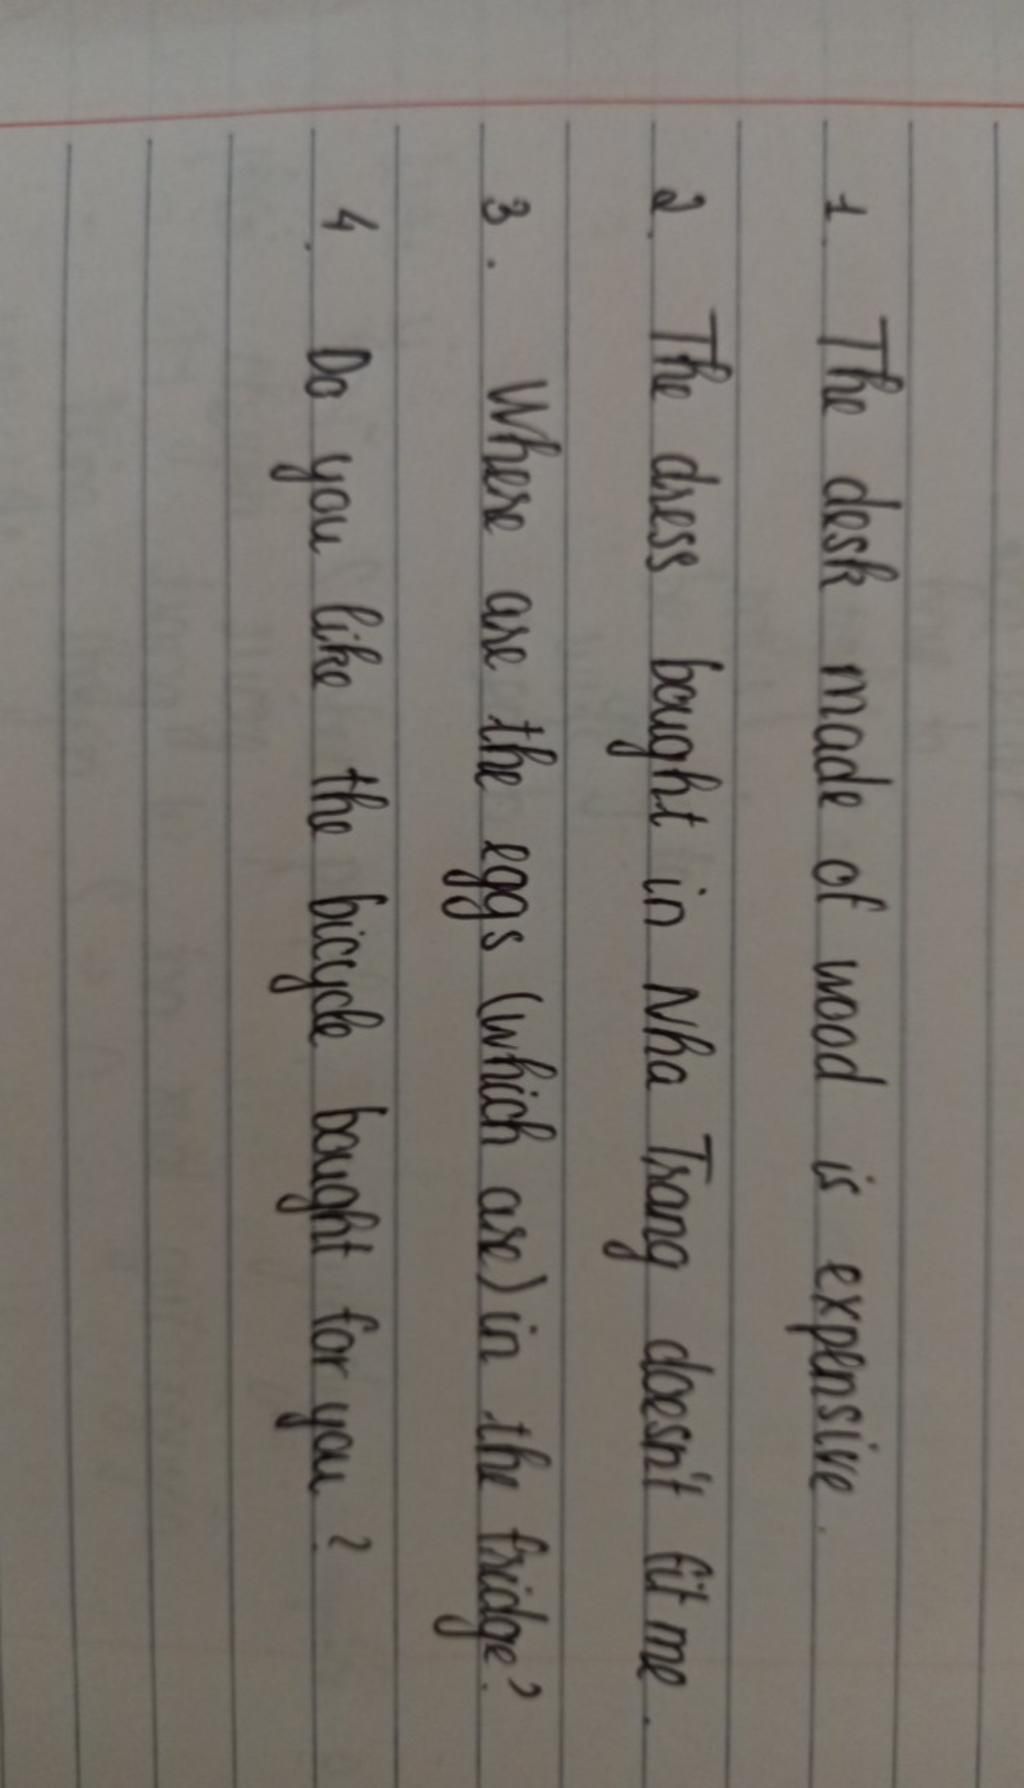 1. The desk made of wood is expensive.
2. The dress bought in Nha Trang doesn't fit me.
3. Where are the eggs (which are) in the fridge?
4. Do you like the bicycle bought for you?